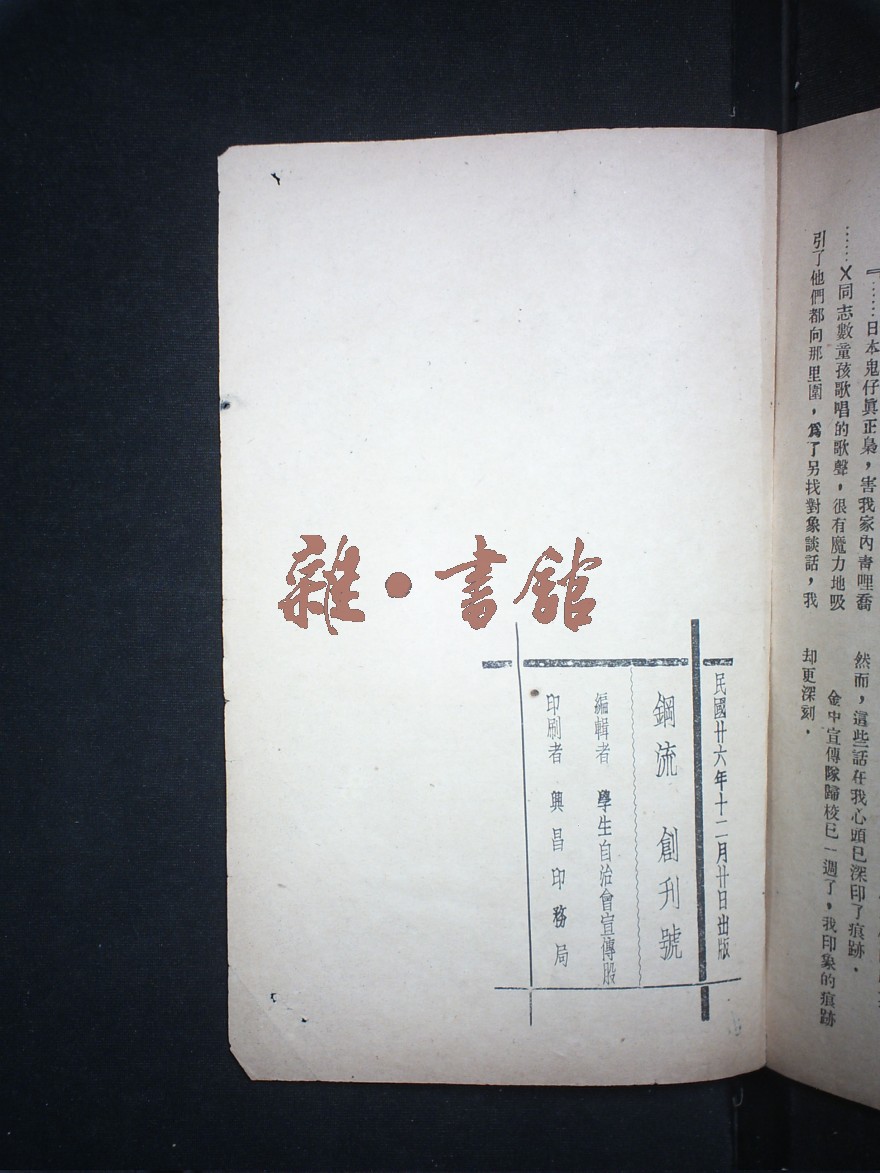 『……日本鬼仔眞正梟，害我家內靑哩喬
……X同志數童孩歌唱的歌聲，很有魔力地吸
引了他們都向那里圍，爲了另找對象談話，我
然而，這些話在我心頭已深印了痕跡．
金中宣傳隊歸校已一週了，我印象的痕跡
却更深刻．
民國廿六年十二月廿日出版
鋼流 創刊號
編輯者 學生自治會宣傳股
印刷者 興昌印務局
雜•書館